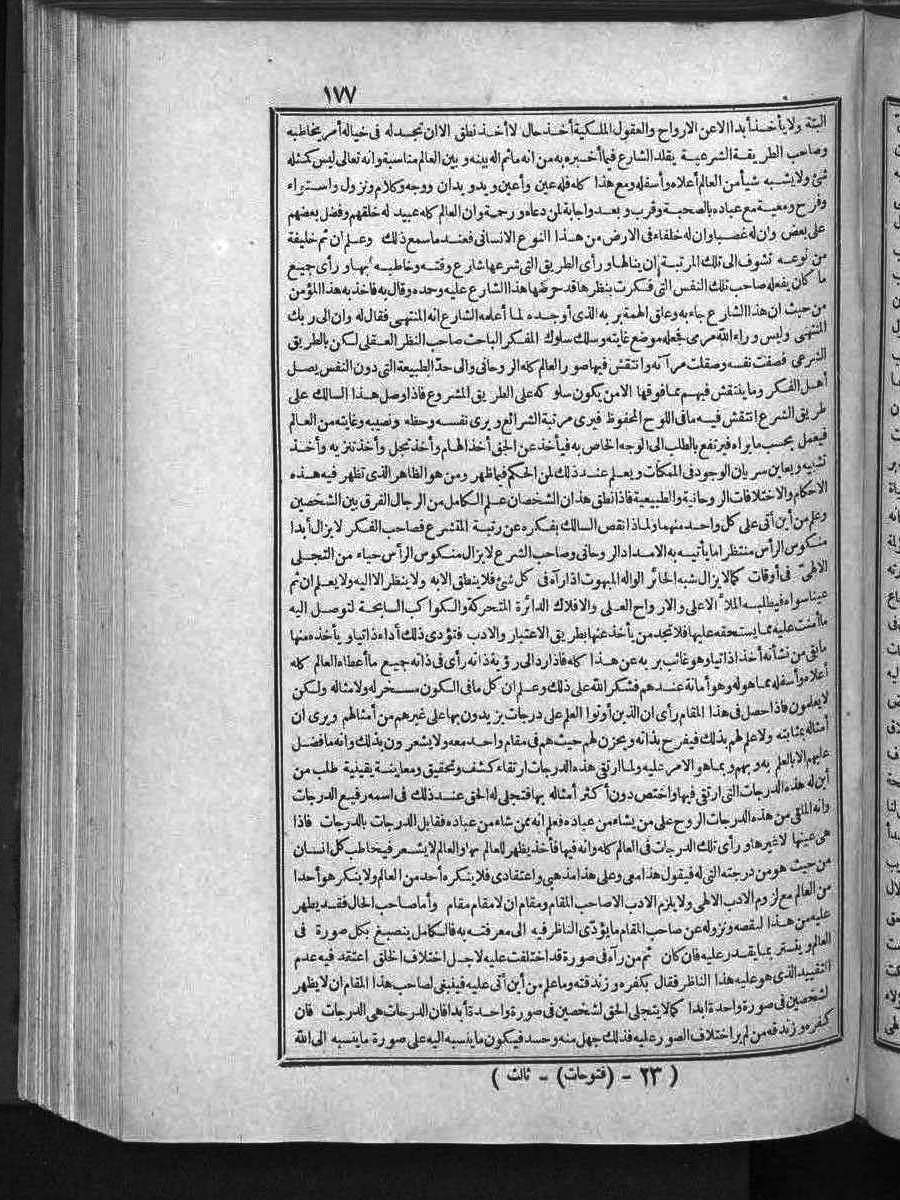 ١٧٧
البتة ولا يأخذ أبدا الا عن الارواح والعقول الملكية أخذ حال لا أخذ نطق الا ان تجسد له فى خياله أمر يخاطبه
وصاحب الطريقة الشرعية يقلد الشارع فيما أخبره به من انه ماثم اله بينه وبين العالم مناسبة وانه تعالى ليس كمثله
شئ ولا يشبه شيأ من العالم أعلاه وأسفله ومع هذا كله فله عين وأعين ويد ويدان ووجه وكلام ونزول واستواء
وفرح ومعية مع عباده بالصحبة وقرب وبعد واجابة لمن دعاه ورحمة وان العالم كله عبيد له خلقهم وفضل بعضهم
على بعض وان له غضبا وان له خلفاء فى الارض من هذا النوع الانسانى فعندما سمع ذلك وعلم ان ثم خليفة
من نوعه تشوف الى تلك المرتبة ان ينالها ورأى الطريق التى شرعها شارع وقته وخاطبه بها ورأى جميع
ما كان يفعله صاحب تلك النفس التى فكرت بنظرها قد حرضها هذا الشارع عليه وحده وقال به فاخذ به هذا المؤمن
من حيث ان هذا الشارع جاء به وعلق الهمة بربه الذى أوجده لما أعلمه الشارع انه المنتهى فقال له وان الى ربك
المنتهى وليس وراء الله مرمى فجعله موضع غايته وسلك سلوك المفكر الباحث صاحب النظر العقلى لكن بالطريق
الشرعى فصفت نفسه وصقلت مرآته وانتقش فيها صور العالم كله الروحانى والى حد الطبيعة التى دون النفس يصل
أهل الفكر وما ينتقش فيهم مما فوقها الا من يكون سلوكه على الطريق المشروع فاذا وصل هذا السالك على
طريق الشرع انتقش فيه ما فى اللوح المحفوظ فيرى مرتبة الشرائع ويرى نفسه وحظه ونصيبه وغايته من العالم
فيعمل بحسب ما يراه فيرتفع بالطلب الى الوجه الخاص به فيأخذ عن الحق أخذ الهام وأخذ تجل وأخذ تنزيه وأخذ
تشبيه ويعاين سريان الوجود فى الممكنات ويعلم عند ذلك لمن الحكم فيما ظهر ومن هو الظاهر الذى تظهر فيه هذه
الاحكام والاختلافات الروحانية والطبيعية فاذا نطق هذان الشخصان علم الكامل من الرجال الفرق بين الشخصين
وعلم من أين أتى على كل واحد منهما ولماذا نقص السالك بفكره عن رتبة المتشرع فصاحب الفكر لا يزال أبدا
منكوس الرأس منتظرا ما يأتيه به الامداد الروحانى وصاحب الشرع لا يزال منكوس الرأس حياء من التجلى
الالهىّ فى أوقات كما لا يزال شبه الحائر الواله المبهوت اذا رآه فى كل شئ فلا ينطق الا به ولا ينظر الا اليه ولا يعلم ان ثم
عينا سواه فيطلبه الملأ الاعلى والارواح العلى والافلاك الدائرة المتحركة والكواكب السابحة لتوصل اليه
ما أمنت عليه مما يستحقه عليها فلا تجد من يأخذ عنها بطريق الاعتبار والادب فتؤدى ذلك أداء ذاتيا ويأخذه منها
مابقى من نشأته أخذا ذاتيا وهو غائب بربه عن هذا كله فاذا رد الى رؤية ذاته رأى فى ذاته جميع ما أعطاه العالم كله
أعلاه وأسفله مما هو له وهو أمانة عندهم فشكر الله على ذلك وعلم ان كل ما فى الكون مسخر له ولامثاله ولكن
لا يعلمون فاذا حصل فى هذا المقام رأى ان الذين أوتوا العلم على درجات يزيدون بها على غيرهم من أمثالهم ويرى ان
أمثاله بمثابته ولا علم لهم بذلك فيفرح بذاته ويحزن لهم حيث هم فى مقام واحد معه ولا يشعرون بذلك وانه ما فضل
عليهم الا بالعلم به وبهم وبما هو الامر عليه ولما ارتقى هذه الدرجات ارتقاء كشف وتحقيق ومعاينة يقينية طلب من
أين له هذه الدرجات التى ارتقى فيها واختص دون أكثر أمثاله بها فتجلى له الحق عند ذلك فى اسمه رفيع الدرجات
وانه الملقى من هذه الدرجات الروح على من يشاء من عباده فعلم انه ممن شاء من عباده فقابل الدرجات بالدرجات فاذا
هى عينها لا غيرها ورأى تلك الدرجات فى العالم كله وانه فيها فأخذ يظهر للعالم بها والعالم لا يشعر فيخاطب كل انسان
من حيث هو من درجته التى له فيقول هذا معى وعلى هذا مذهبى واعتقادى فلا ينكره أحد من العالم ولا ينكر هو أحدا
من العالم مع لزوم الادب الالهى ولا يلزم الادب الا صاحب المقام ومقام ان لا مقام مقام وأما صاحب الحال فقد يظهر
عليه من هذا لنقصه ونزوله عن صاحب المقام ما يؤدّى الناظر فيه الى معرفته به فالكامل ينصبغ بكل صورة فى
العالم ويستتر بما يقدر عليه فان كان ثم من رآه فى صورة قد اختلفت عليه لاجل اختلاف الخلق اعتقد فيه عدم
التقييد الذى هو عليه هذا الناظر فقال بكفره وزندقته وما علم من أين أتى عليه فينبغى لصاحب هذا المقام ان لا يظهر
لشخصين فى صورة واحدة أبدا كما لا يتجلى الحق لشخصين فى صورة واحدة أبدا فان الدرجات هى الدرجات فان
كفره وزندقه من لم ير اختلاف الصور عليه فذلك جهل منه وحسد فيكون ما ينسبه اليه على صورة ما ينسبه الى الله
( ٢٣ - (فتوحات) - ثالث )